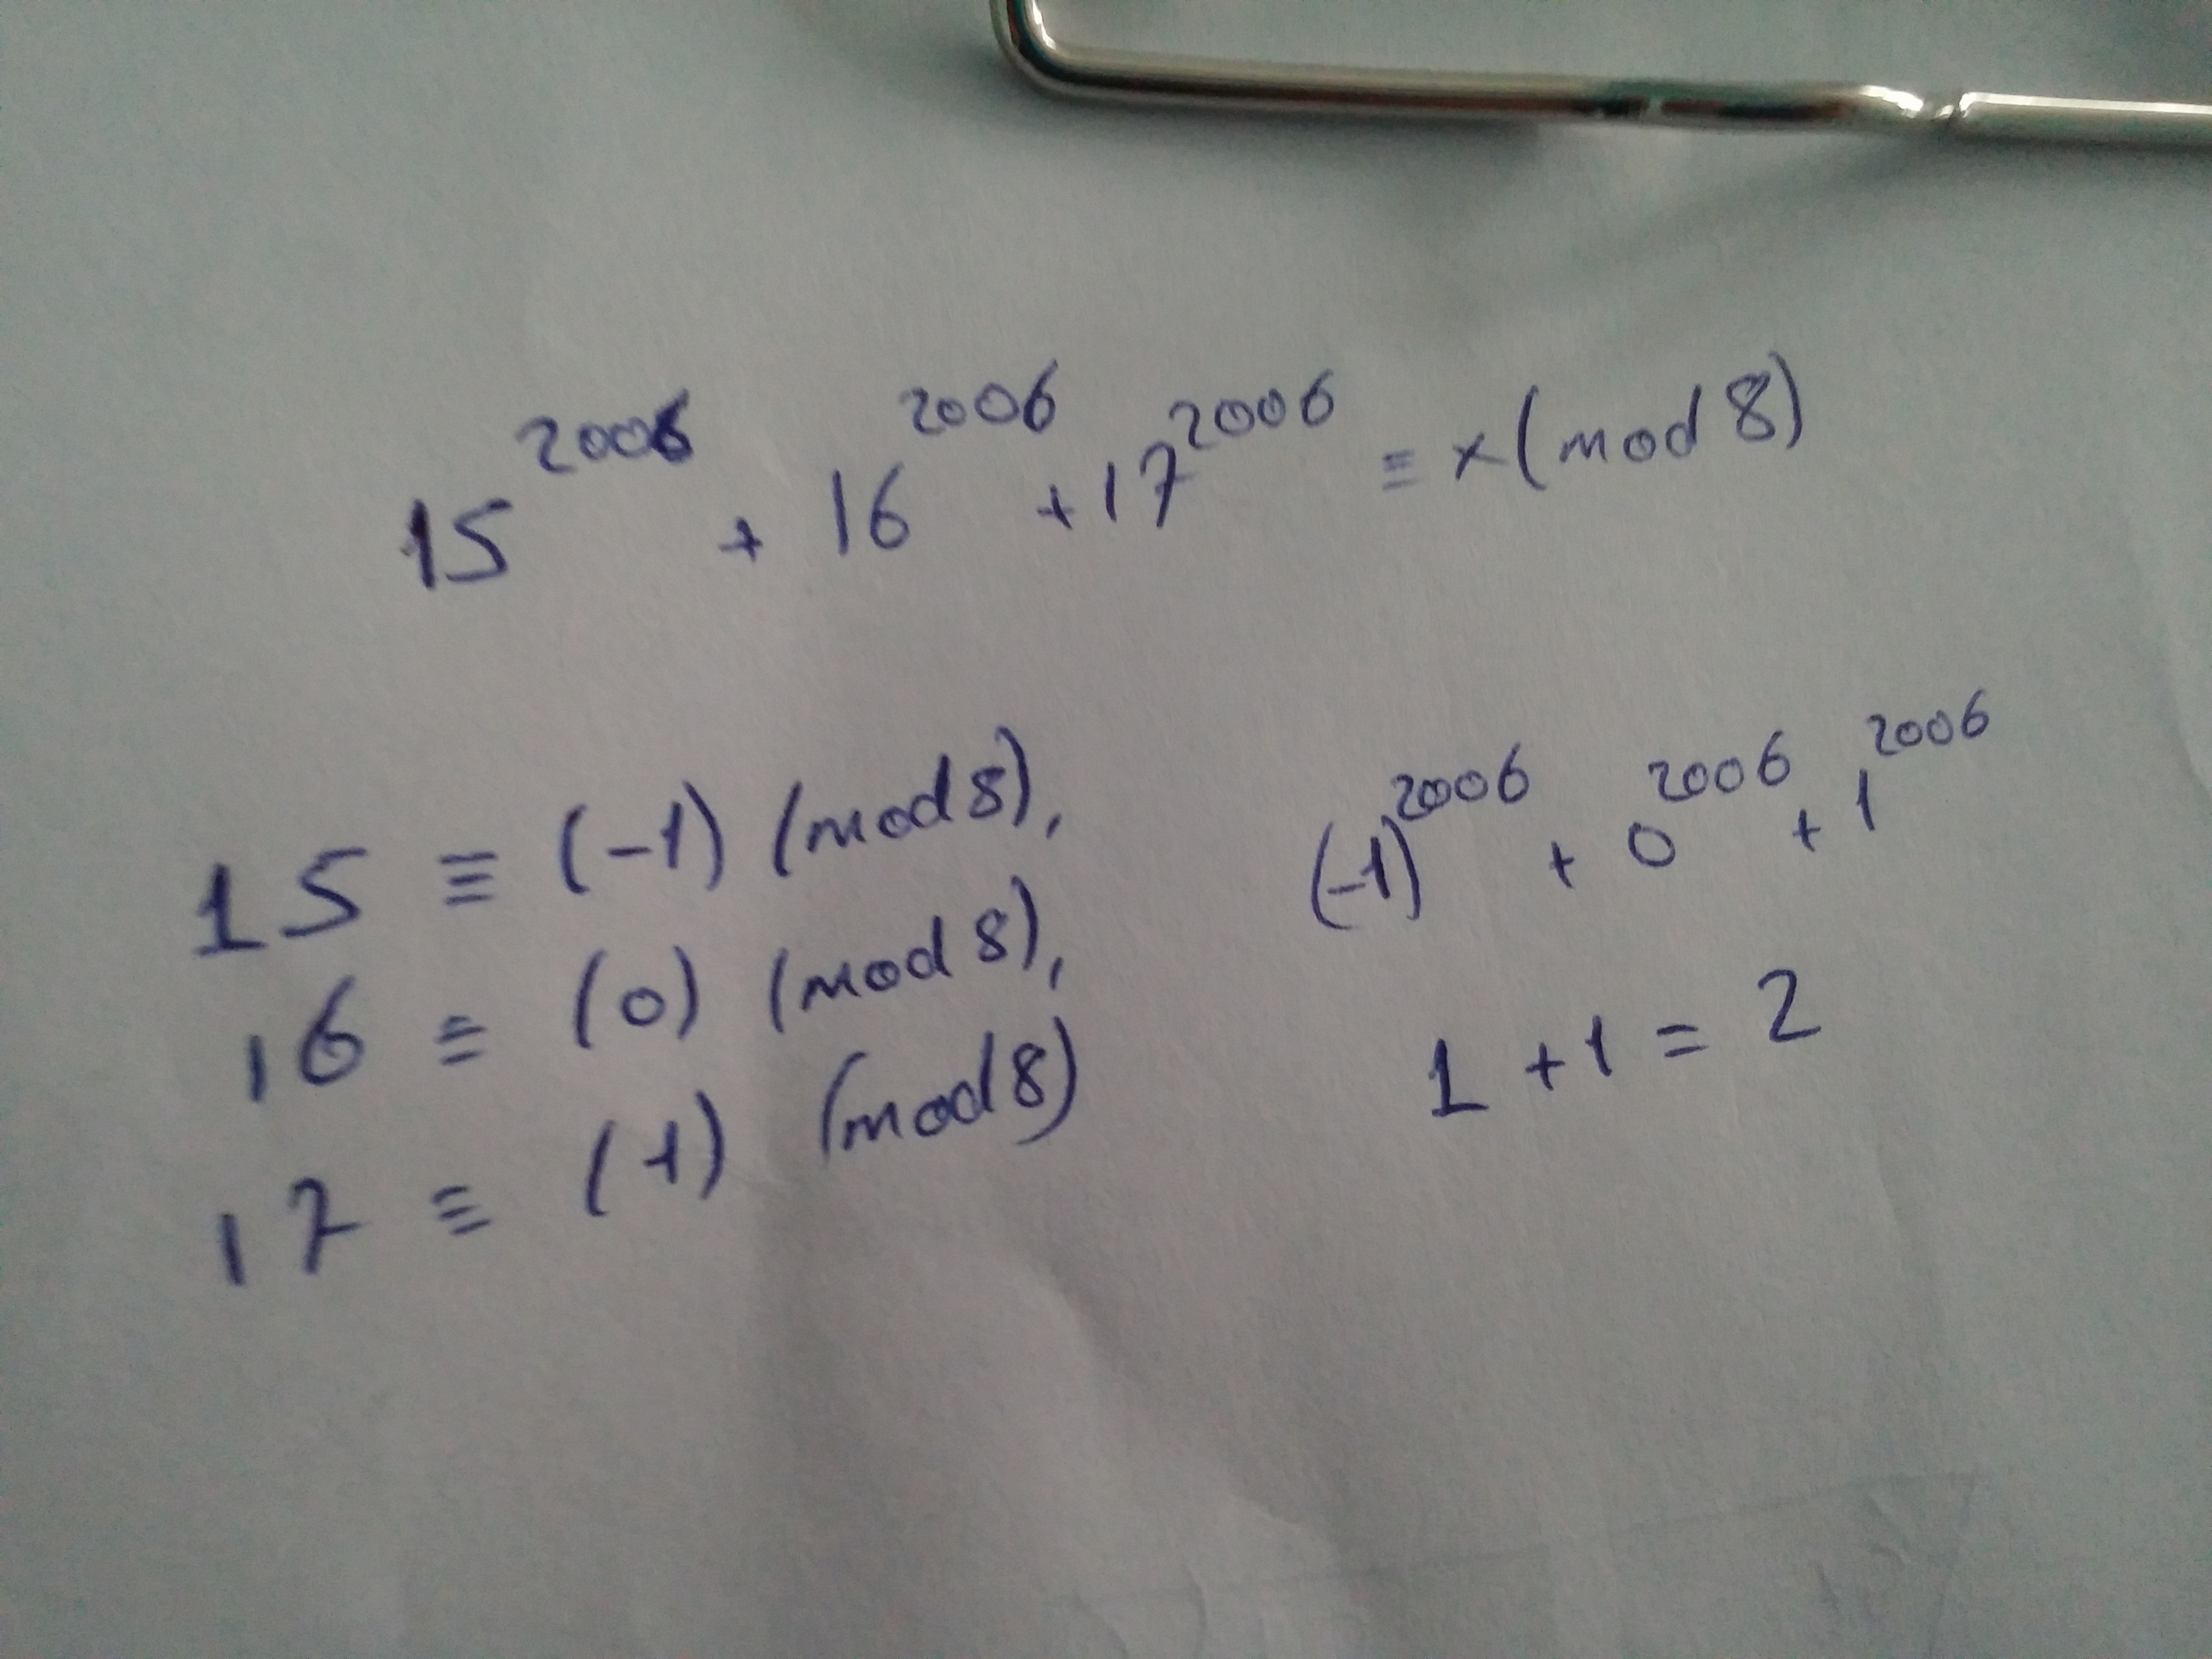 15²⁰⁰⁶ + 16²⁰⁰⁶ + 17²⁰⁰⁶ ≡ x (mod 8)
15 ≡ (-1) (mod 8),
16 ≡ (0) (mod 8),
17 ≡ (1) (mod 8)
(-1)²⁰⁰⁶ + 0²⁰⁰⁶ + 1²⁰⁰⁶
1 + 1 = 2